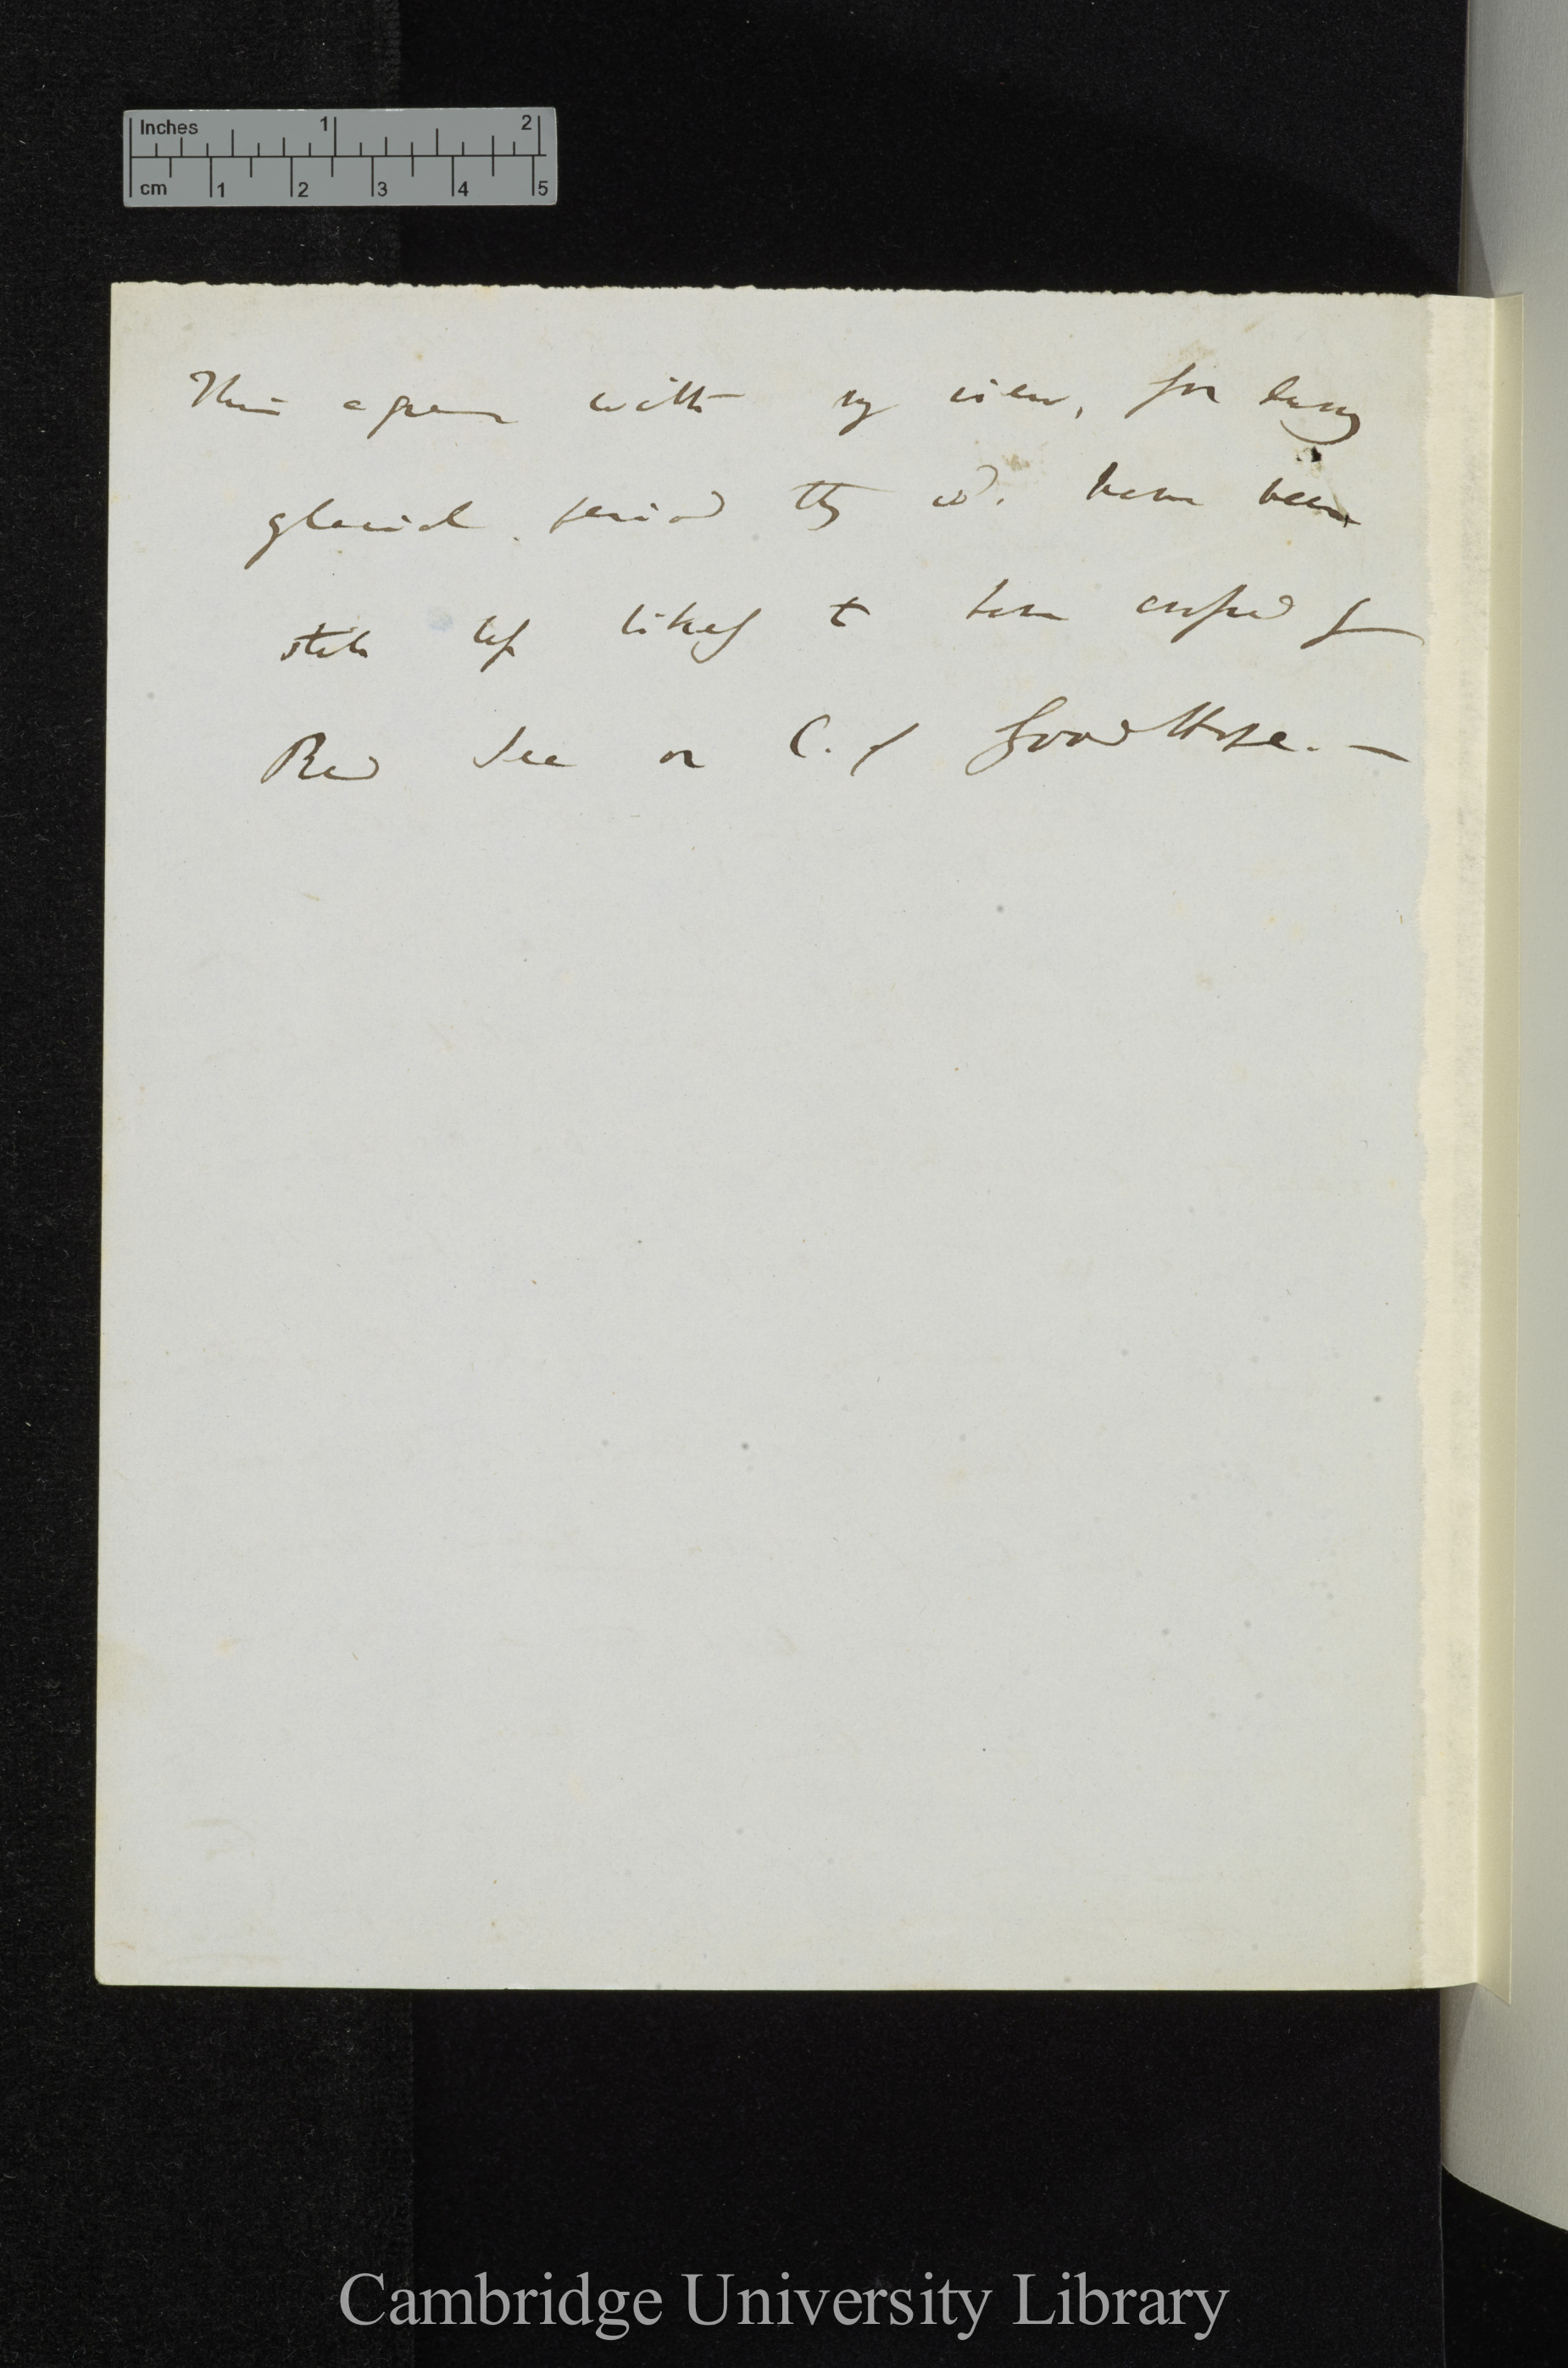 Inches 1 2
cm 1 2 3 4 5
This agrees with my view, for during
glacial period they wd. have been
still less likely to have crossed
Red Sea or C. of Good Hope. —
Cambridge University Library